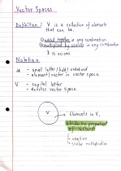 Vector Spaces
Definition: V is a collection of elements
that can be,
① added together in any combination
② multiplied by scalars in any combination
Notation
u - small letter/bold/underlined
= element/vector in vector space
V - capital letter
= denotes vector space
V
Elements in V,
• addition
• scalar multiplication